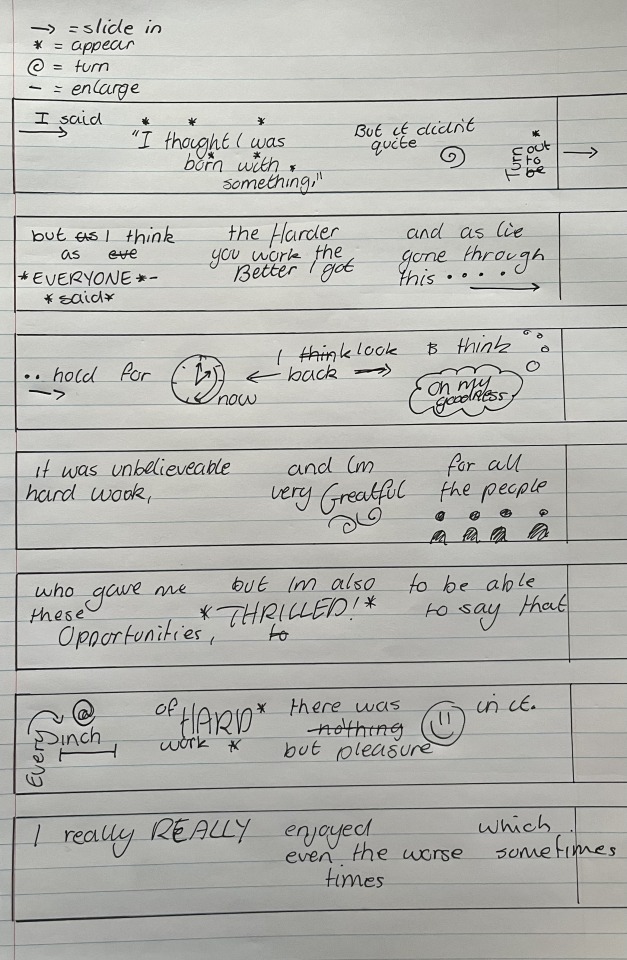 → = slide in
* = appear
@ = turn
- = enlarge
I said
"I thought I was
born with
something."
But it didn't
quite
Turn out
to
be
but as I think
as eve
*EVERYONE*-
*said*
the Harder
you work the
Better I got
and as I've
gone through
this ....
.. hold for
now
I think look
back
& think
oh my
goodness
it was unbelieveable
hard wook,
and I'm
very Greatful
for all
the people
who gave me
these
Opportunities,
but I'm also
*THRILLED!*
to
to be able
to say that
Every inch
of HARD*
work *
there was
nothing
but pleasure
in it.
I really REALLY
enjoyed
even the worse
times
which
sometimes